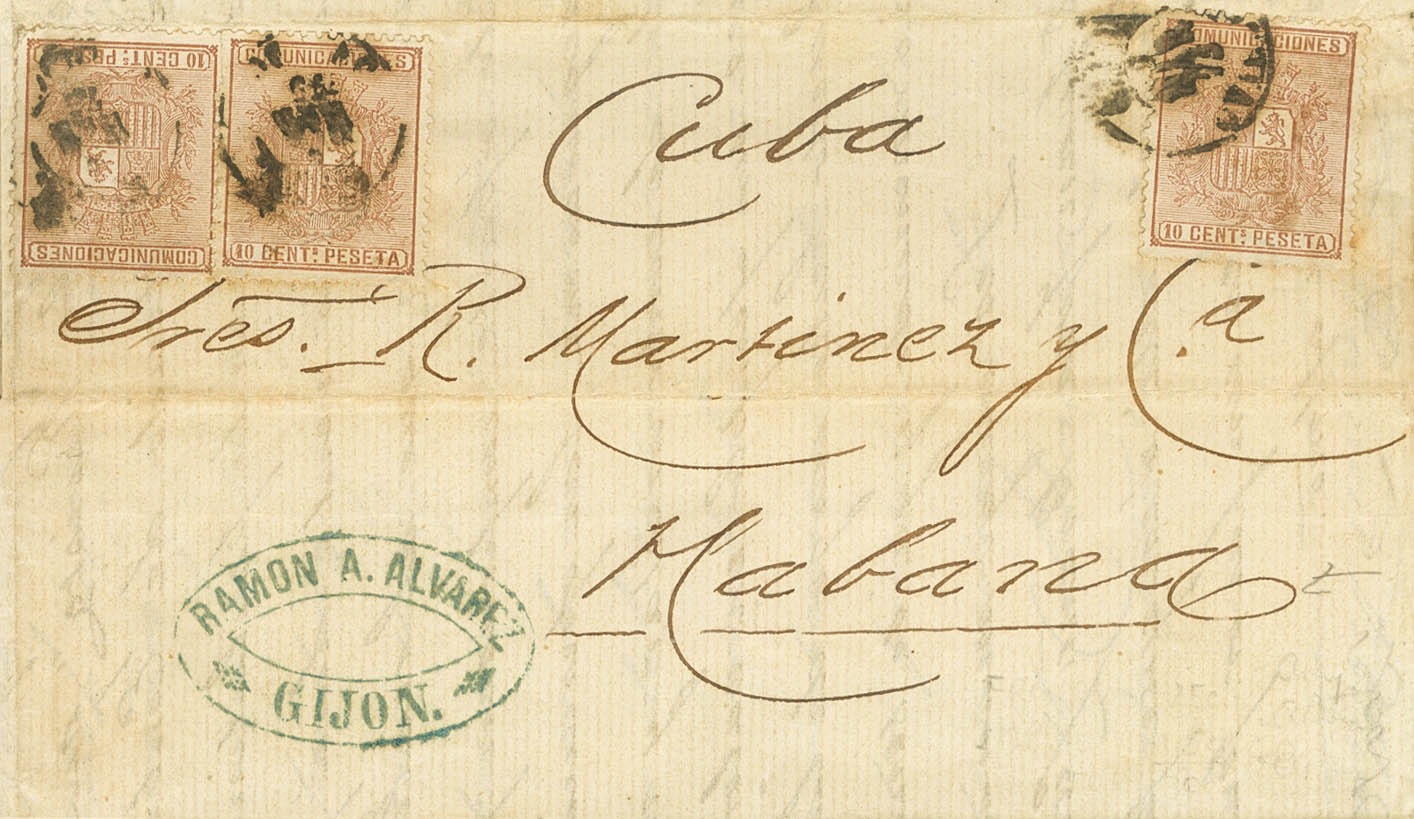 10 CENT.s PESETA
COMUNICACIONES
COMUNICACIONES
10 CENT.s PESETA
COMUNICACIONES
10 CENT.s PESETA
Cuba
Sres. R. Martinez y C.a
Habana
RAMON A. ALVAREZ
GIJON.